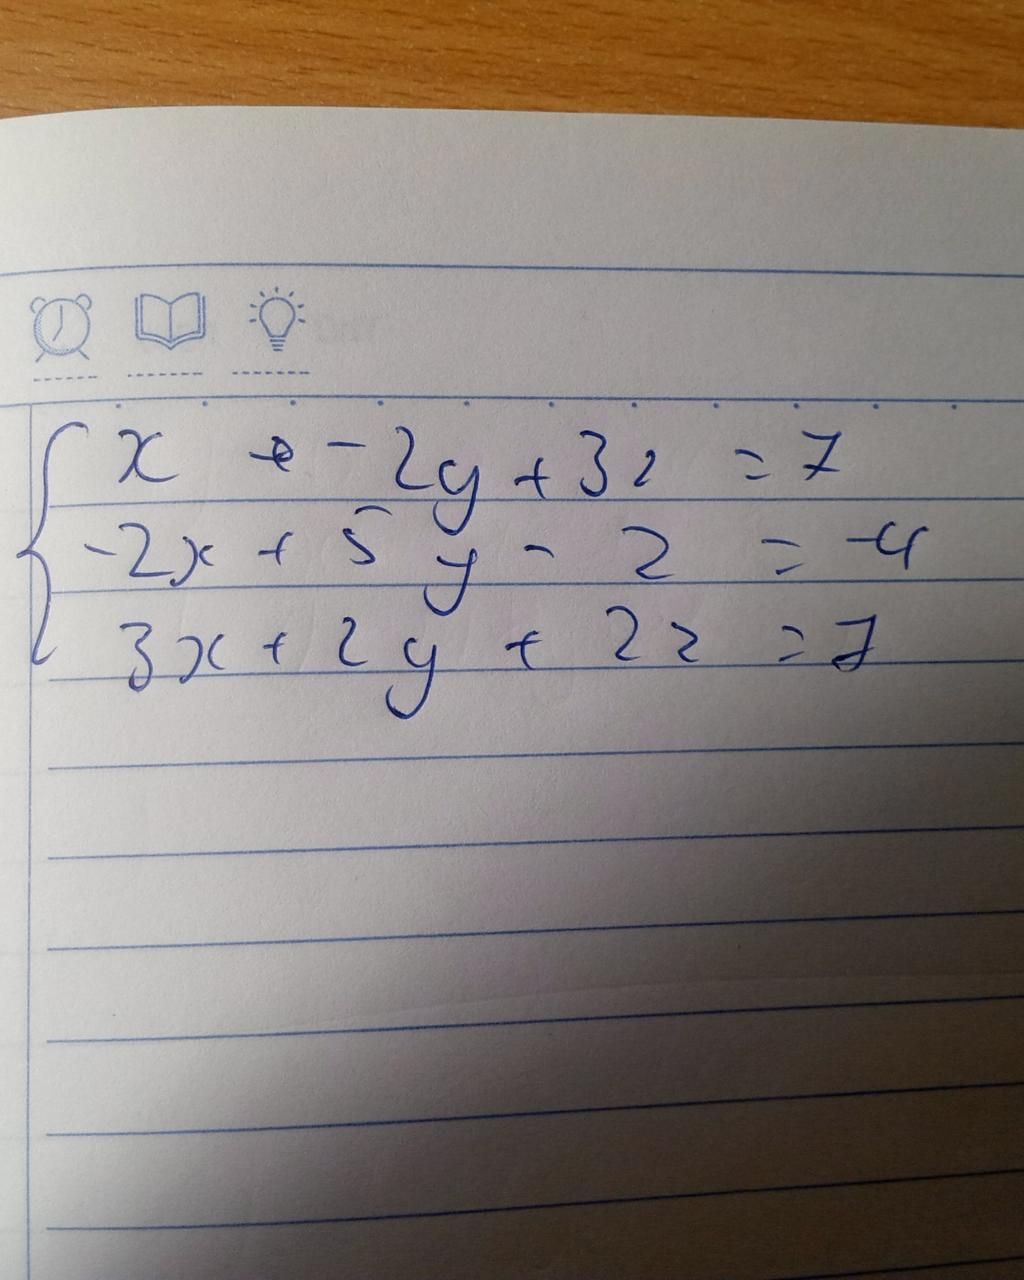 x + -2y + 3z = 7
-2x + 5y - z = -4
3x + 2y + 2z = 7